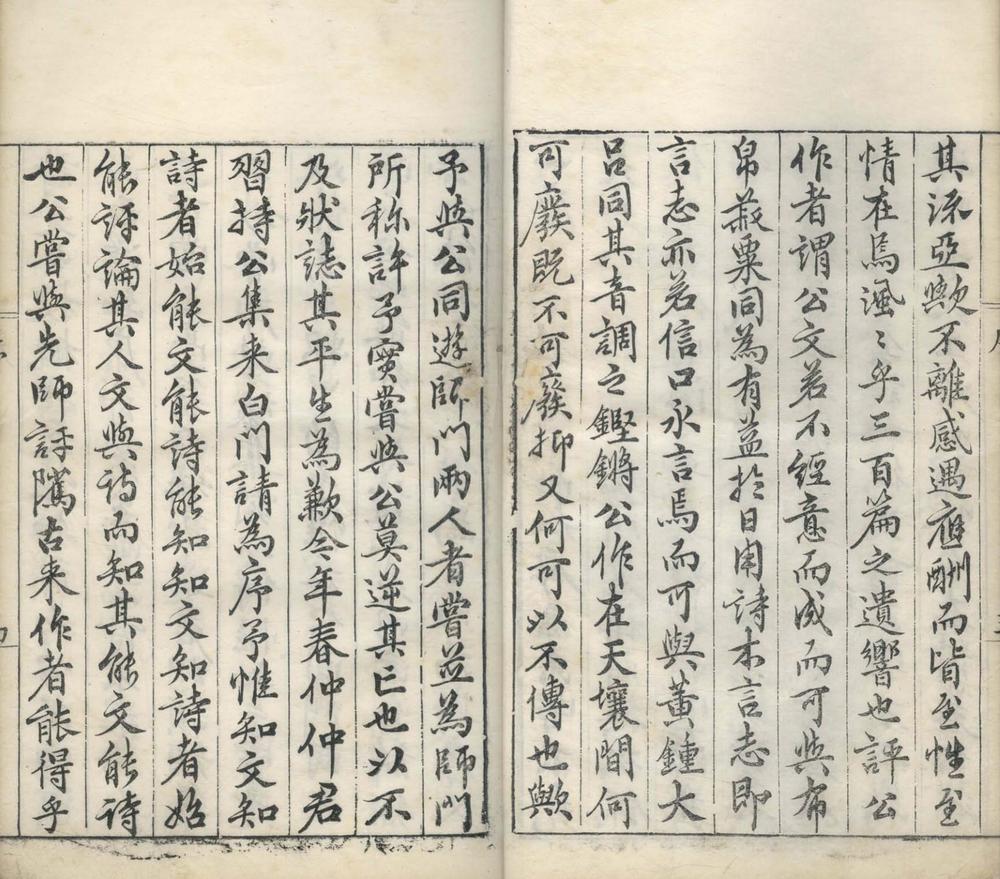 其流亞歟不離感遇應酬而皆至性至
情在焉渢〻乎三百篇之遺響也評公
作者謂公文若不經意而成而可與布
帛菽粟同為有益於日用詩本言志即
言志亦若信口永言焉而可與黃鍾大
呂同其音調之鏗鏘公作在天壤間何
可廢既不可廢抑又何可以不傳也歟
予與公同遊師門兩人者嘗並為師門
所称許予實嘗與公莫逆其亡也以不
及狀誌其平生為歉今年春仲仲君
習持公集来白門請為序予惟知文知
詩者始能文能詩能知知文知詩者始
能評論其人文與詩而知其能文能詩
也公嘗與先師評騭古来作者能得乎